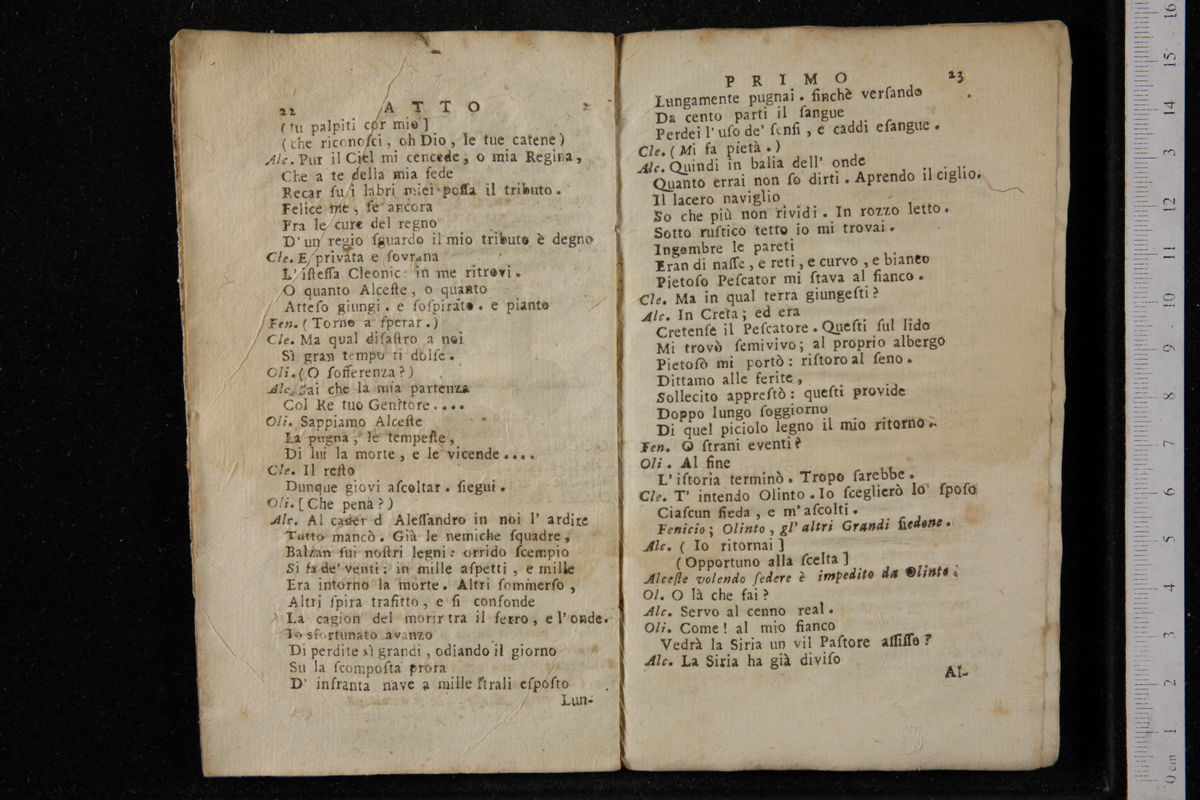 22 ATTO
(tu palpiti cor mio]
(che riconoſci, oh Dio, le tue catene)
Alc. Pur il Ciel mi cencede, o mia Regina,
Che a te della mia fede
Recar ſu i labri miei poſſa il tributo.
Felice me, ſe ancora
Fra le cure del regno
D'un regio ſguardo il mio tributo è degno
Cle. E privata e ſovrana
L'iſteſſa Cleonice in me ritrovi.
O quanto Alceſte, o quanto
Atteſo giungi. e ſoſpirato. e pianto
Fen. (Torno a ſperar.)
Cle. Ma qual diſaſtro a noi
Sì gran tempo ti dolſe.
Oli. (O ſofferenza?)
Alc. Sai che la mia partenza
Col Re tuo Genitore....
Oli. Sappiamo Alceſte
La pugna, le tempeſte,
Di lui la morte, e le vicende....
Cle. Il reſto
Dunque giovi aſcoltar. ſiegui.
Oli. [Che pena?)
Alc. Al cader d Aleſſandro in noi l' ardire
Tutto mancò. Già le nemiche ſquadre,
Balzan ſui noſtri legni: orrido ſcempio
Si fa de' venti: in mille aſpetti, e mille
Era intorno la morte. Altri ſommerſo,
Altri ſpira trafitto, e ſi confonde
La cagion del morir tra il ferro, e l'onde.
Io sfortunato avanzo
Di perdite sì grandi, odiando il giorno
Su la ſcompoſta prora
D' infranta nave a mille ſtrali eſpoſto
Lun-
PRIMO 23
Lungamente pugnai. finchè verſando
Da cento parti il ſangue
Perdei l'uſo de' ſenſi, e caddi eſangue.
Cle. (Mi fa pietà.)
Alc. Quindi in balia dell' onde
Quanto errai non ſo dirti. Aprendo il ciglio.
Il lacero naviglio
So che più non rividi. In rozzo letto.
Sotto ruſtico tetto io mi trovai.
Ingombre le pareti
Eran di naſſe, e reti, e curvo, e bianco
Pietoſo Peſcator mi ſtava al fianco.
Cle. Ma in qual terra giungeſti?
Alc. In Creta; ed era
Cretenſe il Peſcatore. Queſti ſul lido
Mi trovò ſemivivo; al proprio albergo
Pietoſò mi portò: riſtoro al ſeno.
Dittamo alle ferite,
Sollecito appreſtò: queſti provide
Doppo lungo ſoggiorno
Di quel piciolo legno il mio ritorno.
Fen. O ſtrani eventi?
Oli. Al fine
L'iſtoria terminò. Tropo ſarebbe.
Cle. T' intendo Olinto. Io ſceglierò lo ſpoſo
Ciaſcun ſieda, e m'aſcolti.
Fenicio; Olinto, gl'altri Grandi ſiedone.
Alc. (Io ritornai]
(Opportuno alla ſcelta]
Alceſte volendo ſedere è impedito da Olinto.
Ol. O là che fai?
Alc. Servo al cenno real.
Oli. Come! al mio fianco
Vedrà la Siria un vil Paſtore aſſiſſo?
Alc. La Siria ha già diviſo
Al-